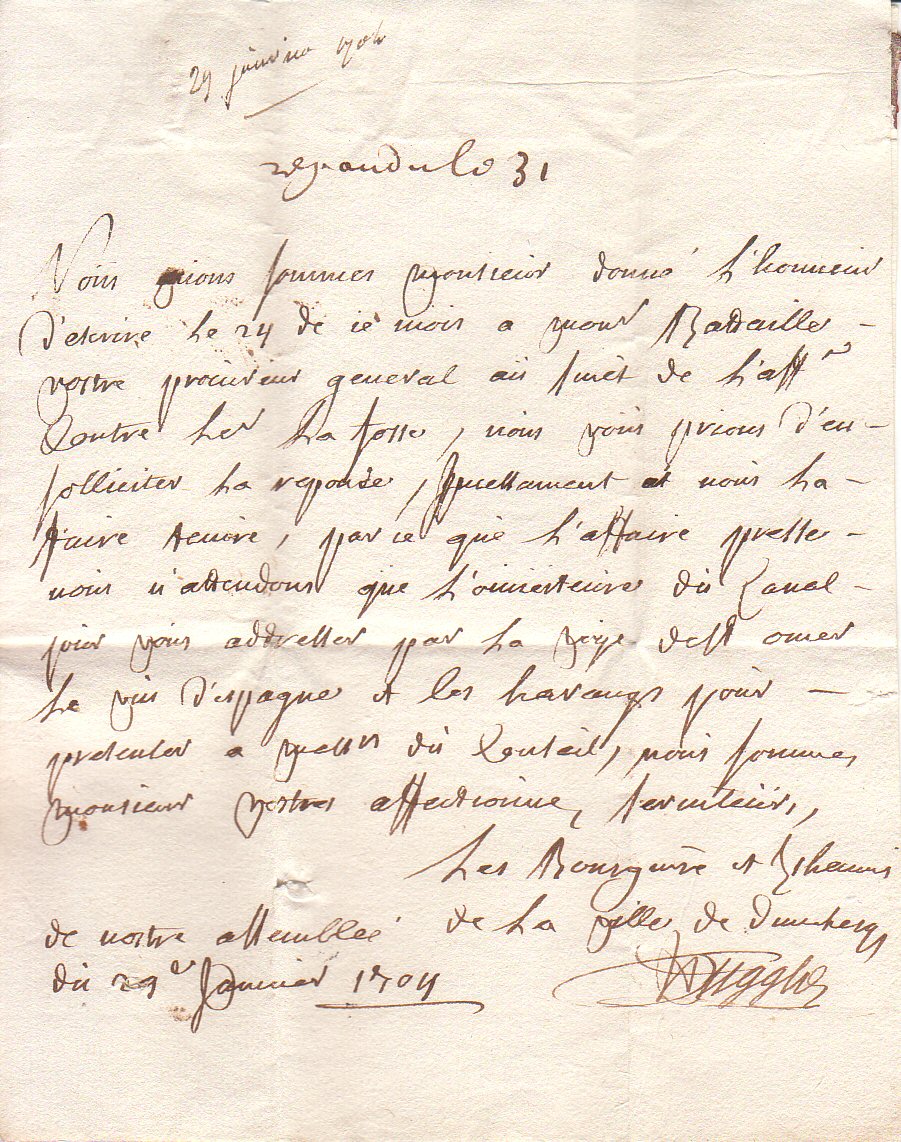 29 janvier 1704
repondu le 31
Nous nous sommes monsieur donné l'honneur
d'escrire le 24 de ce mois a monsr Bataille
vostre procureur general au suiet de l'affre
Contre les La fosse, nous vous prions d'en
solliciter la reponse, et nous la
faire tenire, parce que l'affaire presse
nous n'attendons que l'ouverteure du Canal
pour vous addresser par la voye de St omer
le vin d'espagne et les harangs pour
presenter a messrs du Conseil, nous sommes
monsieur vostres affectionnes serviteurs,
Les Bourgmre et Eschevins
de la ville de Duncherq
de nostre assemblée
du 29e Janvier 1704